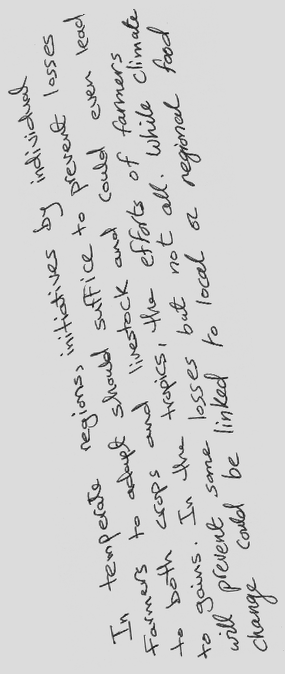 In temperate regions, initiatives by individual
farmers to adapt should suffice to prevent losses
to both crops and livestock and could even lead
to gains. In the tropics, the efforts of farmers
will prevent some losses but not all. While climate
change could be linked to local or regional food